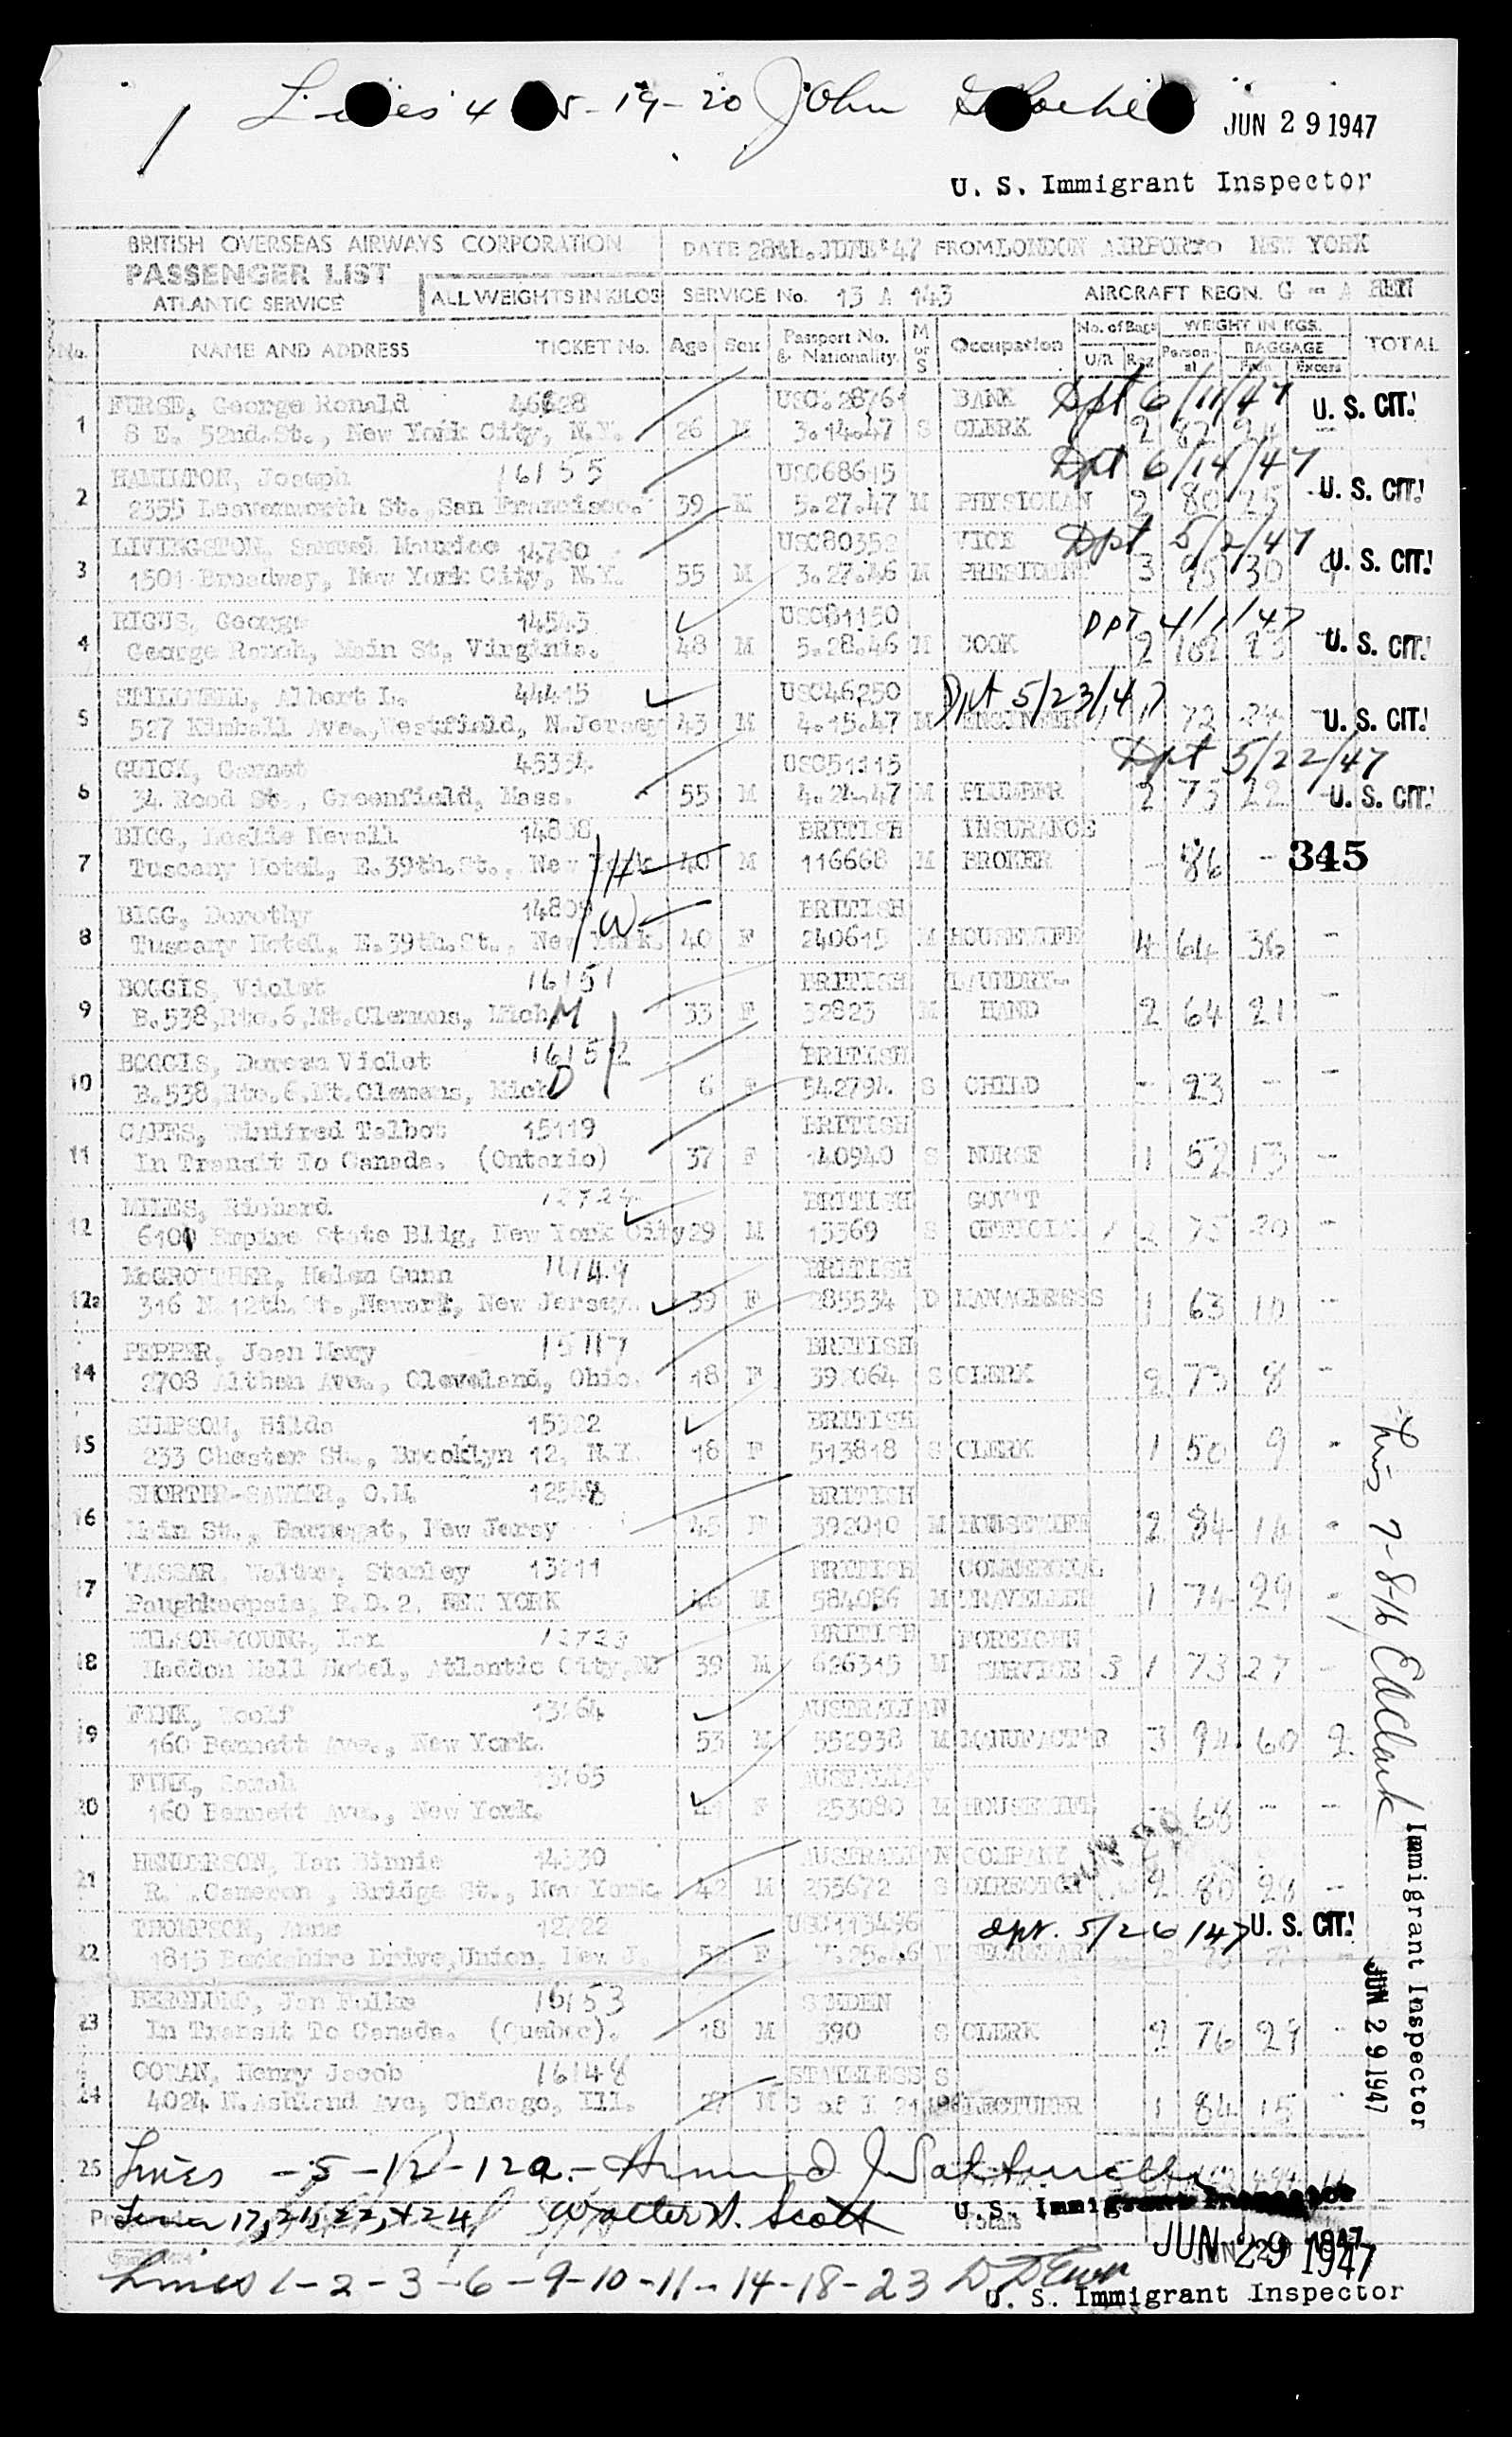 4 - 19 - 20 John
JUN 29 1947
U. S. Immigrant Inspector
BRITISH OVERSEAS AIRWAYS CORPORATION DATE 28th. JUNE '47 FROM LONDON AIRPORT TO NEW YORK
PASSENGER LIST
ATLANTIC SERVICE ALL WEIGHTS IN KILOS SERVICE No. 13 A 143 AIRCRAFT REGN. G - A
No. NAME AND ADDRESS TICKET No. Age Sex Passport No. & Nationality. M or S Occupation No. of Bags U/R Reg WEIGHT IN KGS. Personal BAGGAGE Free Excess TOTAL
FURSE, George Ronald USC. 28761 BANK Dpt 6/11/47 U. S. CIT.
1 8 E. 52nd. St., New York City, N.Y. 26 M 3.14.47 S CLERK 2 82 24 -
HAMILTON, Joseph 16155 USC68615 Dpt 6/14/47 U. S. CIT.
2 2355 Leavenworth St. San Francisco. 39 M 5.27.47 M PHYSICIAN 2 80 25 -
LIVINGSTON, Samuel Maurice 14780 USC80352 VICE Dpt 5/2/47 U. S. CIT.
3 1501 Broadway, New York City, N.Y. 55 M 3.27.46 M PRESIDENT 3 95 30
RIGUS, George 14543 USC81150 Dpt 4/1/47 U. S. CIT.
4 George Rough, Main St, Virginia. 48 M 5.28.46 M COOK 2 102 23 -
STILLWELL, Albert L. 44415 USC46250 Dpt 5/23/47 U. S. CIT.
5 527 Kimball Ave., Westfield, N.Jersey 43 M 4.15.47 M ENGINEER 1 72 24 -
GUICK, Garnet 45354 USC51115 Dpt 5/22/47
6 34 Rood St., Greenfield, Mass. 55 M 4.24.47 M PLUMBER 2 73 22 U. S. CIT.
BIGG, Leslie Nevell 14808 BRITISH INSURANCE
7 Tuscany Hotel, E.39th.St., New York H 40 M 116668 M BROKER - 86 - 345
BIGG, Dorothy 14809 W BRITISH
8 Tuscany Hotel, E.39th.St., New York. 40 F 240615 M HOUSEWIFE 4 64 36 -
BOGGIS, Violet 16151 BRITISH LAUNDRY-
9 B.538,Rte.6,Mt.Clemens, Mich. M 33 F 32823 M HAND 2 64 21 -
BOGGIS, Dorcen Violet 16152 BRITISH
10 B.538,Rte.6,Mt.Clemens, Mich D 6 F 542794 S CHILD - 23 - -
CAPES, Winifred Talbot 15119 BRITISH
11 In Transit To Canada. (Ontario) 37 F 140940 S NURSE 1 52 13 -
MILES, Richard 12724 BRITISH GOV'T
12 6101 Empire State Bldg, New York City 29 M 13369 S OFFICIAL 1 2 75 20 -
McGROTTHER, Helen Gunn 16149 BRITISH
12a 316 N.12th.St., Newark, New Jersey. 39 F 285534 D MANAGERESS 1 63 10 -
PEPPER, Joan Mary 15117 BRITISH
14 2708 Althen Ave., Cleveland, Ohio. 18 F 392064 S CLERK 2 73 8 -
SIMPSON, Hilda 15322 BRITISH
15 233 Chester St., Brooklyn 12, N.Y. 18 F 513818 S CLERK 1 50 9 -
SHORTER-SAWYER, O.M. 12548 BRITISH
16 Main St., Barnegat, New Jersy 45 F 392010 M HOUSEWIFE 2 84 14 -
VASSAR, Walter, Stanley 13211 BRITISH COMMERCIAL
17 Poughkeepsie, R.D.2, NEW YORK 46 M 584086 M TRAVELLER 1 74 29 -
WILSON-YOUNG, Ian 12723 BRITISH FOREIGN
18 Haddon Hall Hotel, Atlantic City, NJ 39 M 626315 M SERVICE 3 1 73 27 -
FINK, Woolf 13164 AUSTRALIAN
19 160 Bennett Ave., New York. 53 M 552938 M MANUFACT'R 3 94 60 2
FINK, Sarah 13165 AUSTRALIAN
20 160 Bennett Ave., New York. F 253080 M HOUSEWIFE - 68 - -
HENDERSON, Ian Binnie 14330 AUSTRALIAN COMPANY
21 R. Cameron, Bridge St., New York. 42 M 255672 S DIRECTOR 2 80 28 -
THOMPSON, Anne 12722 Dpt. 5/26/47 U. S. CIT.
22 1815 Berkshire Drive, Union, New J. F SECRETARY
Jan Falke 16153 SWEDEN
23 In Transit To Canada. (Quebec). 18 M 390 S CLERK 2 76 29 -
COMAN, Henry Jacob 16148 STATELESS S
24 4024 N.Ashland Ave, Chicago, Ill. 27 M LECTURER 1 84 15
25 Lines - 5 - 12 - 12a. - Armand
Lines 17, 21, 22, + 24 Walter W. Scott U. S. Immigrant Inspector
Totals
JUN 29 1947
Lines 1 - 2 - 3 - 6 - 9 - 10 - 11 - 14 - 18 - 23
U. S. Immigrant Inspector
Lins 7-8-16 Ed Clark
Immigrant Inspector
JUN 29 1947